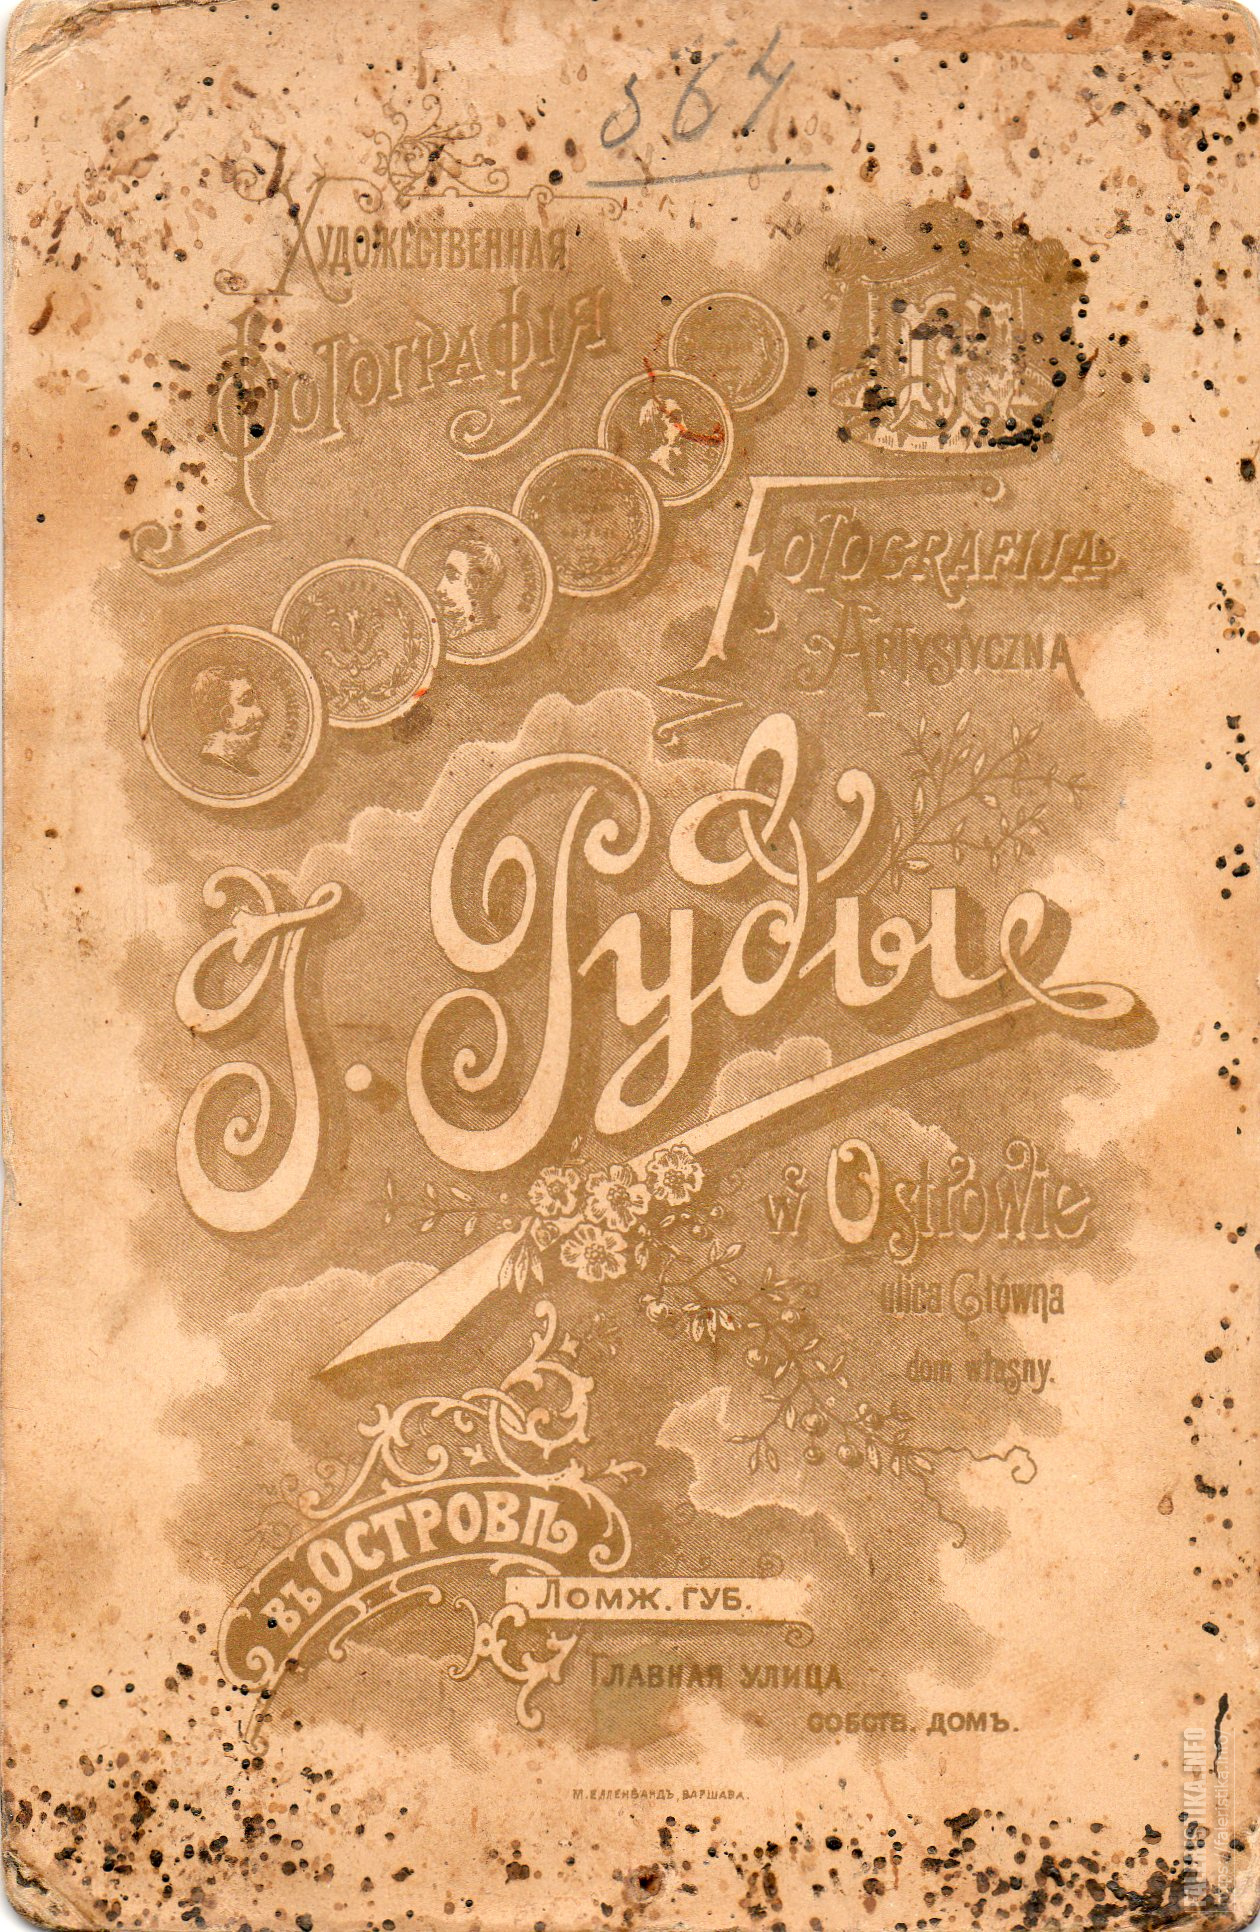 564
Художественная
Фотографія
Fotografija
Artystyczna
І. Рудые
w Ostrowie
ulica Główna
dom własny.
въ Островѣ
Ломж. губ.
Главная улица
собств. домъ.
М. Елленбандъ, Варшава.
FALERISTIKA.INFO